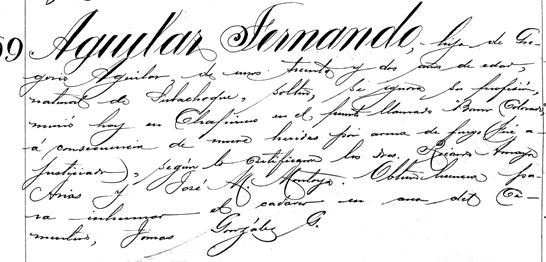 59 Aguilar Fernando, hijo de Gre-
gorio Aguilar, de unos treinta y dos años de edad,
natural de Subachoque, soltero, se ignora su profesión,
murió hoy en Chapinero en el punto llamado Barro Colorado
á consecuencia de nueve heridas por arma de fuego (fué a-
justiciado), según lo certificaron los dres. Ricardo Amaya
Arias y José M. Montoya. Obtuvo licencia pa-
ra inhumar el cadáver en una del Ce-
menterio, Tomas González G.